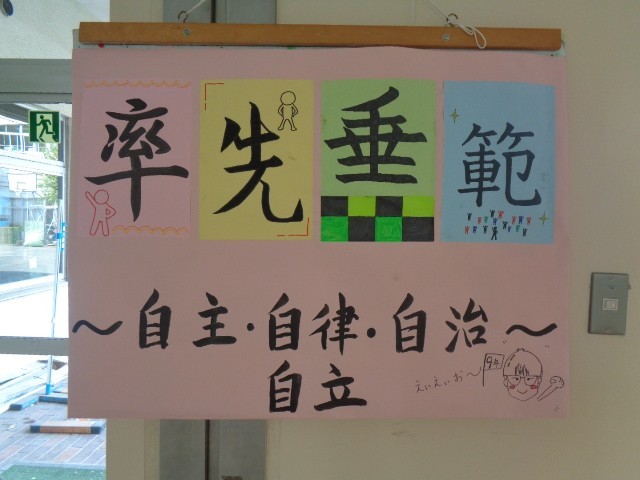 率先垂範
～自主・自律・自治～
自立
えいえいお～